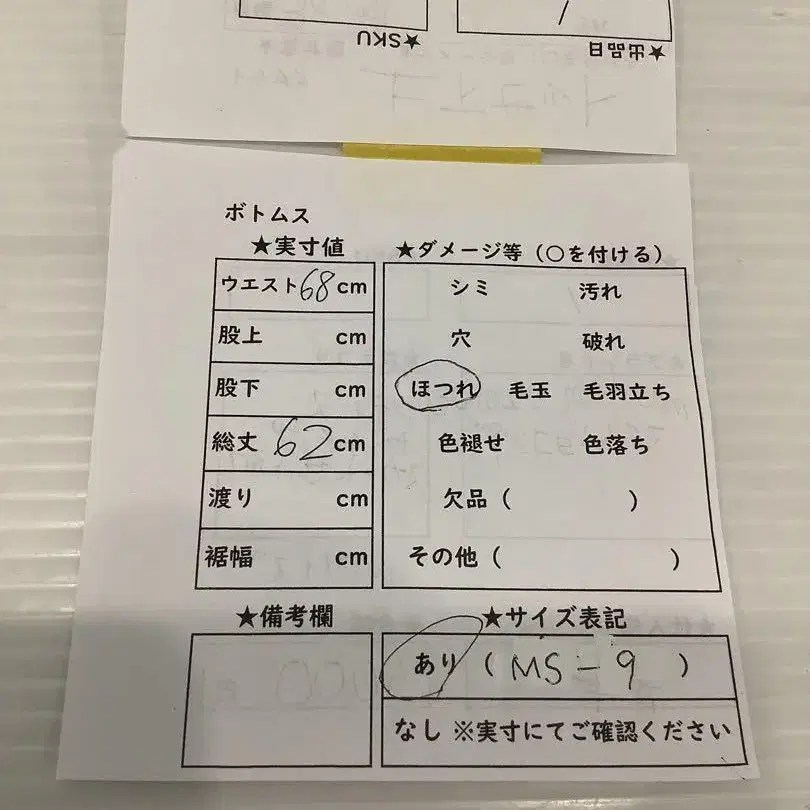 ★SKU
★出品日
ボトムス
★実寸値
ウエスト 68 cm
股上 cm
股下 cm
総丈 62 cm
渡り cm
裾幅 cm
★ダメージ等（〇を付ける）
シミ 汚れ
穴 破れ
ほつれ 毛玉 毛羽立ち
色褪せ 色落ち
欠品（ ）
その他（ ）
★備考欄
★サイズ表記
あり（MS-9）
なし ※実寸にてご確認ください